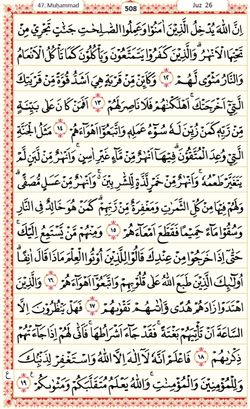 47. Muhammad 508 Juz 26
إِنَّ اللَّهَ يُدْخِلُ الَّذِينَ آمَنُوا وَعَمِلُوا الصَّالِحَاتِ جَنَّاتٍ تَجْرِي مِنْ
تَحْتِهَا الْأَنْهَارُ ۖ وَالَّذِينَ كَفَرُوا يَتَمَتَّعُونَ وَيَأْكُلُونَ كَمَا تَأْكُلُ الْأَنْعَامُ
وَالنَّارُ مَثْوًى لَهُمْ ﴿١٢﴾ وَكَأَيِّنْ مِنْ قَرْيَةٍ هِيَ أَشَدُّ قُوَّةً مِنْ قَرْيَتِكَ
الَّتِي أَخْرَجَتْكَ أَهْلَكْنَاهُمْ فَلَا نَاصِرَ لَهُمْ ﴿١٣﴾ أَفَمَنْ كَانَ عَلَىٰ بَيِّنَةٍ
مِنْ رَبِّهِ كَمَنْ زُيِّنَ لَهُ سُوءُ عَمَلِهِ وَاتَّبَعُوا أَهْوَاءَهُمْ ﴿١٤﴾ مَثَلُ الْجَنَّةِ
الَّتِي وُعِدَ الْمُتَّقُونَ ۖ فِيهَا أَنْهَارٌ مِنْ مَاءٍ غَيْرِ آسِنٍ وَأَنْهَارٌ مِنْ لَبَنٍ لَمْ
يَتَغَيَّرْ طَعْمُهُ وَأَنْهَارٌ مِنْ خَمْرٍ لَذَّةٍ لِلشَّارِبِينَ وَأَنْهَارٌ مِنْ عَسَلٍ مُصَفًّى ۖ
وَلَهُمْ فِيهَا مِنْ كُلِّ الثَّمَرَاتِ وَمَغْفِرَةٌ مِنْ رَبِّهِمْ ۖ كَمَنْ هُوَ خَالِدٌ فِي النَّارِ
وَسُقُوا مَاءً حَمِيمًا فَقَطَّعَ أَمْعَاءَهُمْ ﴿١٥﴾ وَمِنْهُمْ مَنْ يَسْتَمِعُ إِلَيْكَ
حَتَّىٰ إِذَا خَرَجُوا مِنْ عِنْدِكَ قَالُوا لِلَّذِينَ أُوتُوا الْعِلْمَ مَاذَا قَالَ آنِفًا ۚ
أُولَٰئِكَ الَّذِينَ طَبَعَ اللَّهُ عَلَىٰ قُلُوبِهِمْ وَاتَّبَعُوا أَهْوَاءَهُمْ ﴿١٦﴾ وَالَّذِينَ
اهْتَدَوْا زَادَهُمْ هُدًى وَآتَاهُمْ تَقْوَاهُمْ ﴿١٧﴾ فَهَلْ يَنْظُرُونَ إِلَّا
السَّاعَةَ أَنْ تَأْتِيَهُمْ بَغْتَةً ۖ فَقَدْ جَاءَ أَشْرَاطُهَا ۚ فَأَنَّىٰ لَهُمْ إِذَا جَاءَتْهُمْ
ذِكْرَاهُمْ ﴿١٨﴾ فَاعْلَمْ أَنَّهُ لَا إِلَٰهَ إِلَّا اللَّهُ وَاسْتَغْفِرْ لِذَنْبِكَ
وَلِلْمُؤْمِنِينَ وَالْمُؤْمِنَاتِ ۗ وَاللَّهُ يَعْلَمُ مُتَقَلَّبَكُمْ وَمَثْوَاكُمْ ﴿١٩﴾